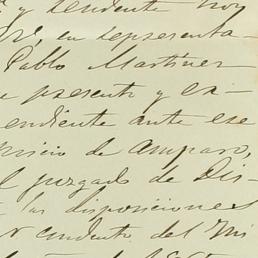 y pendiente hoy
en representa-
Pablo Martinez
e presente y ex-
endiente ante ese
juicio de amparo,
l juzgado de Dis-
las disposiciones
conducente del Mi